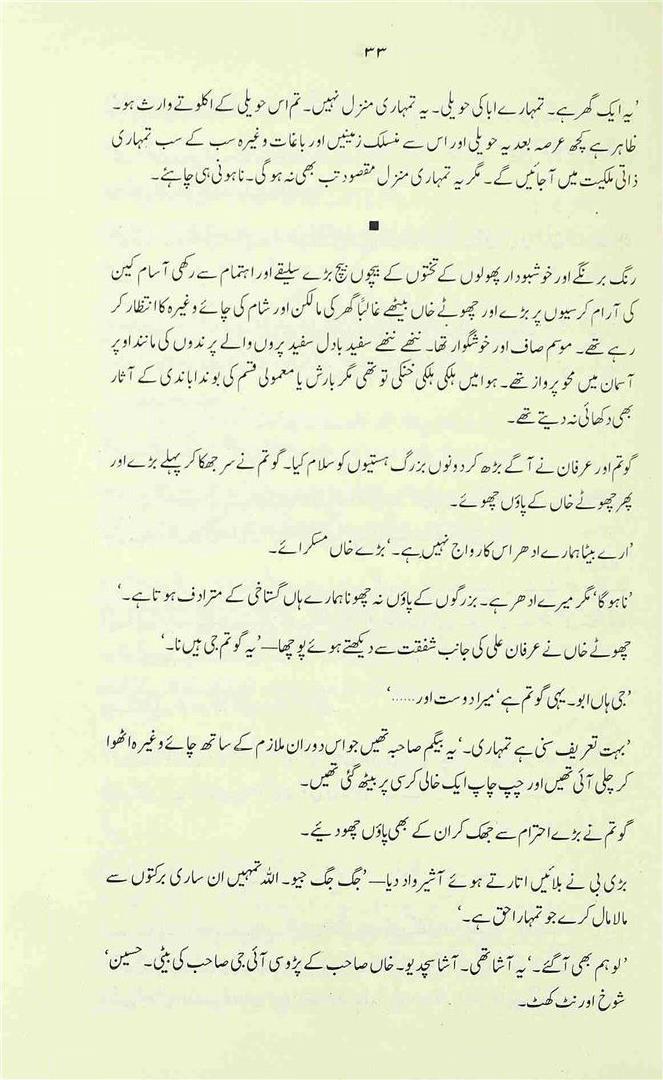 ۳۳
'یہ ایک گھر ہے۔ تمہارے ابا کی حویلی۔ یہ تمہاری منزل نہیں۔ تم اس حویلی کے اکلوتے وارث ہو۔
ظاہر ہے کچھ عرصہ بعد یہ حویلی اور اس سے منسلک زمینیں اور باغات وغیرہ سب کے سب تمہاری
ذاتی ملکیت میں آ جائیں گے۔ مگر یہ تمہاری منزل مقصود تب بھی نہ ہو گی۔ نا ہونی ہی چاہئے۔
■
رنگ برنگے اور خوشبودار پھولوں کے تختوں کے بیچوں بیچ بڑے سلیقے اور اہتمام سے رکھی آسام کین
کی آرام کرسیوں پر بڑے اور چھوٹے خاں بیٹھے غالباً گھر کی مالکن اور شام کی چائے وغیرہ کا انتظار کر
رہے تھے۔ موسم صاف اور خوشگوار تھا۔ ننھے ننھے سفید بادل سفید پروں والے پرندوں کی مانند اوپر
آسمان میں محو پرواز تھے۔ ہوا میں ہلکی ہلکی خنکی تو تھی مگر بارش یا معمولی قسم کی بوندا باندی کے آثار
بھی دکھائی نہ دیتے تھے۔
گوتم اور عرفان نے آگے بڑھ کر دونوں بزرگ ہستیوں کو سلام کیا۔ گوتم نے سر جھکا کر پہلے بڑے اور
پھر چھوٹے خاں کے پاؤں چھوئے۔
'ارے بیٹا ہمارے ادھر اس کا رواج نہیں ہے۔' بڑے خاں مسکرائے۔
'نا ہو گا' مگر میرے ادھر ہے۔ بزرگوں کے پاؤں نہ چھونا ہمارے ہاں گستاخی کے مترادف ہوتا ہے۔'
چھوٹے خاں نے عرفان علی کی جانب شفقت سے دیکھتے ہوئے پوچھا—'یہ گوتم جی ہیں نا۔'
'جی ہاں ابو۔ یہی گوتم ہے' میرا دوست اور......'
'بہت تعریف سنی ہے تمہاری۔' یہ بیگم صاحبہ تھیں جو اس دوران ملازم کے ساتھ چائے وغیرہ اٹھوا
کر چلی آئی تھیں اور چپ چاپ ایک خالی کرسی پر بیٹھ گئی تھیں۔
گوتم نے بڑے احترام سے جھک کر ان کے بھی پاؤں چھو دیئے۔
بڑی بی نے بلائیں اتارتے ہوئے آشیرواد دیا—'جگ جگ جیو۔ اللہ تمہیں ان ساری برکتوں سے
مالا مال کرے جو تمہارا حق ہے۔'
'لو ہم بھی آ گئے۔' یہ آشا تھی۔ آشا سچدیو۔ خاں صاحب کے پڑوسی آئی جی صاحب کی بیٹی۔ حسین'
شوخ اور نٹ کھٹ۔